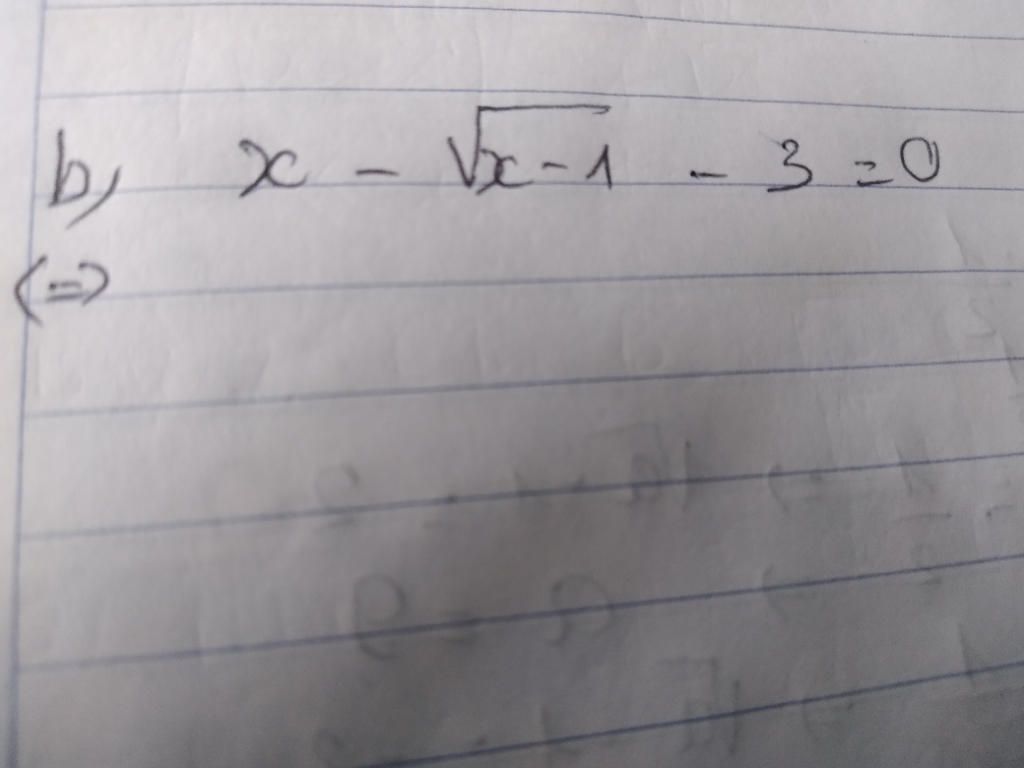 b, x - √x-1 - 3 = 0
(=)